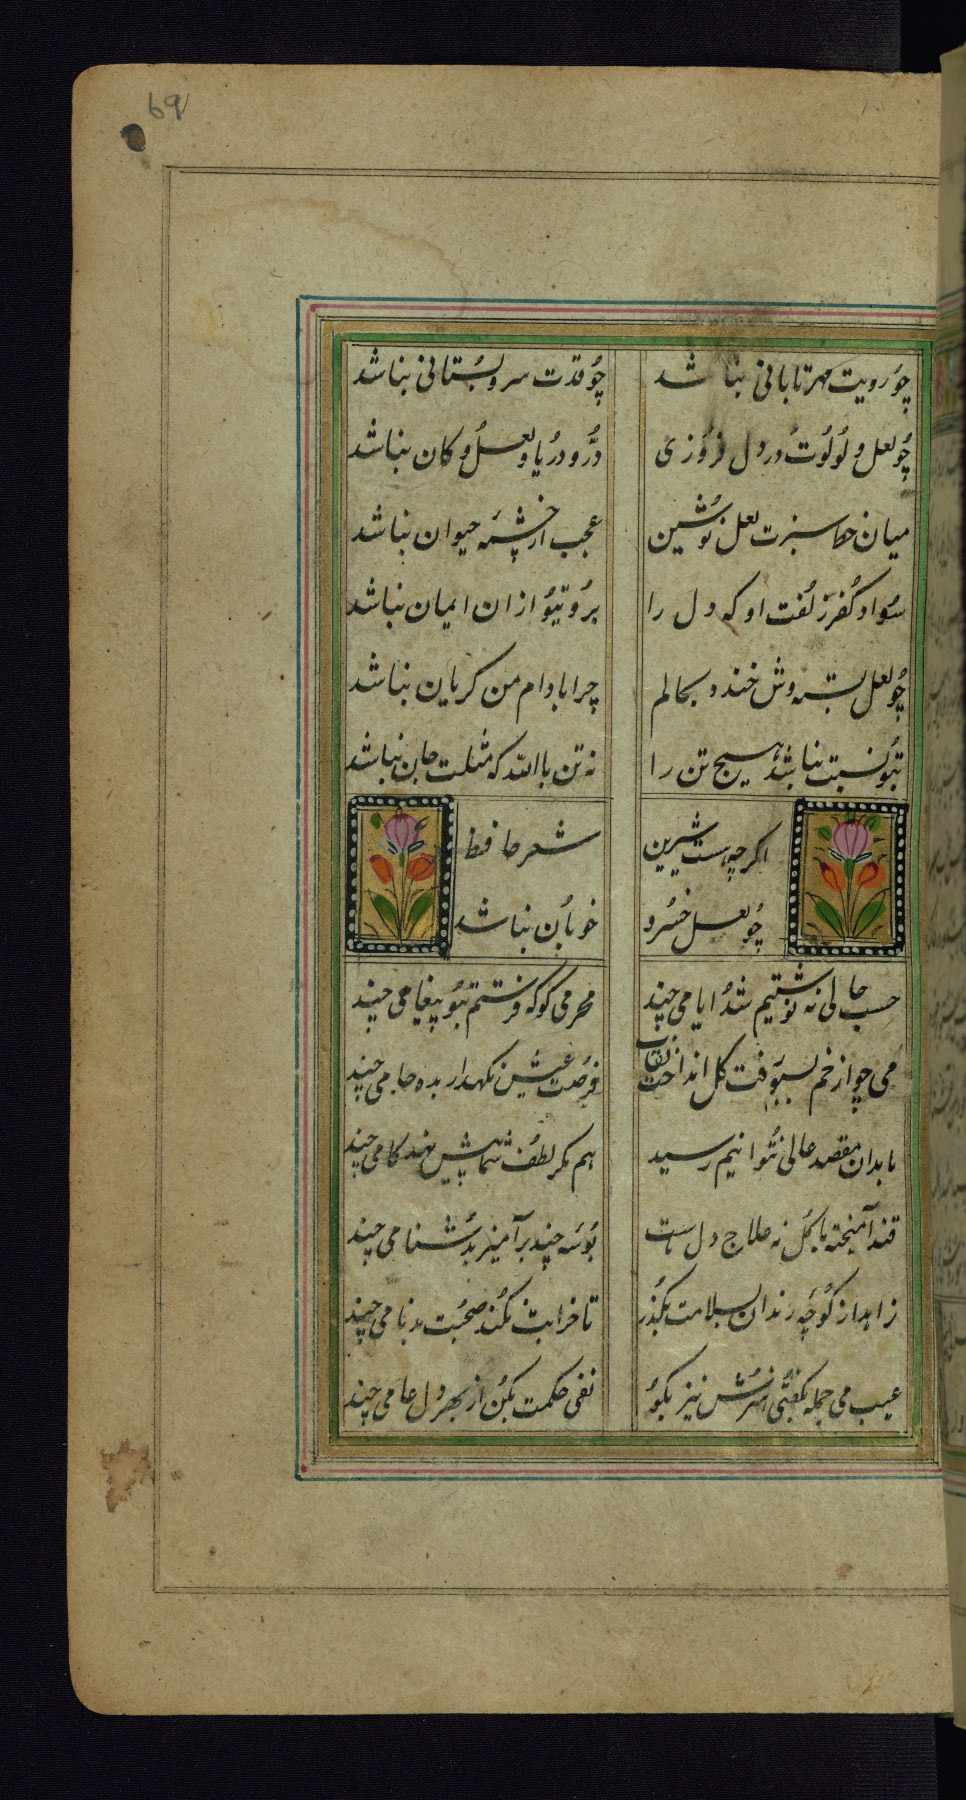 69
چو رویت مهر تابانی نباشد
چو قدت سرو بستانی نباشد
چو لعل و لولوت در دل فروزی
در و دریا و لعل و کان نباشد
میان خط سبزت لعل نوشین
عجب ار چشمه حیوان نباشد
سواد کفر زلفت او که دل را
برو تیو ازان ایمان نباشد
چو لعل بسته وش خندد بحالم
چرا بادام من کریان نباشد
تبو نسبت نباشد هیچ تن را
نه تن باالله که مثلت جان نباشد
اکر چه هست شیرین
شعر حافظ
چو لعل خسرو
خوبان نباشد
حسب حالی نه نوشتیم شد ایامی چند
محرمی کو که فرستم تبو پیغامی چند
می چو از خم بسبو رفت کل انداخت نقاب
فرصت عیش نکهدار بده جامی چند
ما بدان مقصد عالی نتوانیم رسید
هم مکر لطف شما پیش نهد کامی چند
قند آمیخته با کل نه علاج دل ماست
بوسه چند برآمیز بدشنامی چند
زاهد از کوچه رندان بسلامت بکذر
تا خرابت نکند صحبت بدنامی چند
عیب می جمله بکفتی هنرش نیز بکو
نفی حکمت مکن از بهر دل عامی چند